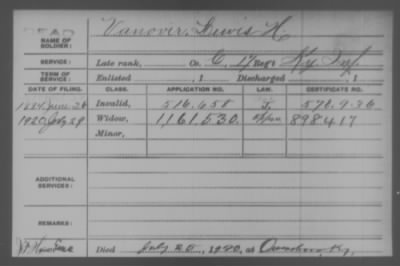 DEAD
NAME OF SOLDIER: Vanover, Lewis H.
SERVICE: Late rank, Co. C, 17 Reg't Ky Inf.
TERM OF SERVICE: Enlisted , 1 Discharged , 1
DATE OF FILING. CLASS. APPLICATION NO. LAW. CERTIFICATE NO.
1884 June 26 Invalid, 516.458 J. 570.936
1920 July 29 Widow, 1,161,530 898417
Minor,
ADDITIONAL SERVICES:
REMARKS:
Died July 20, 1920, at Owensboro, Ky.